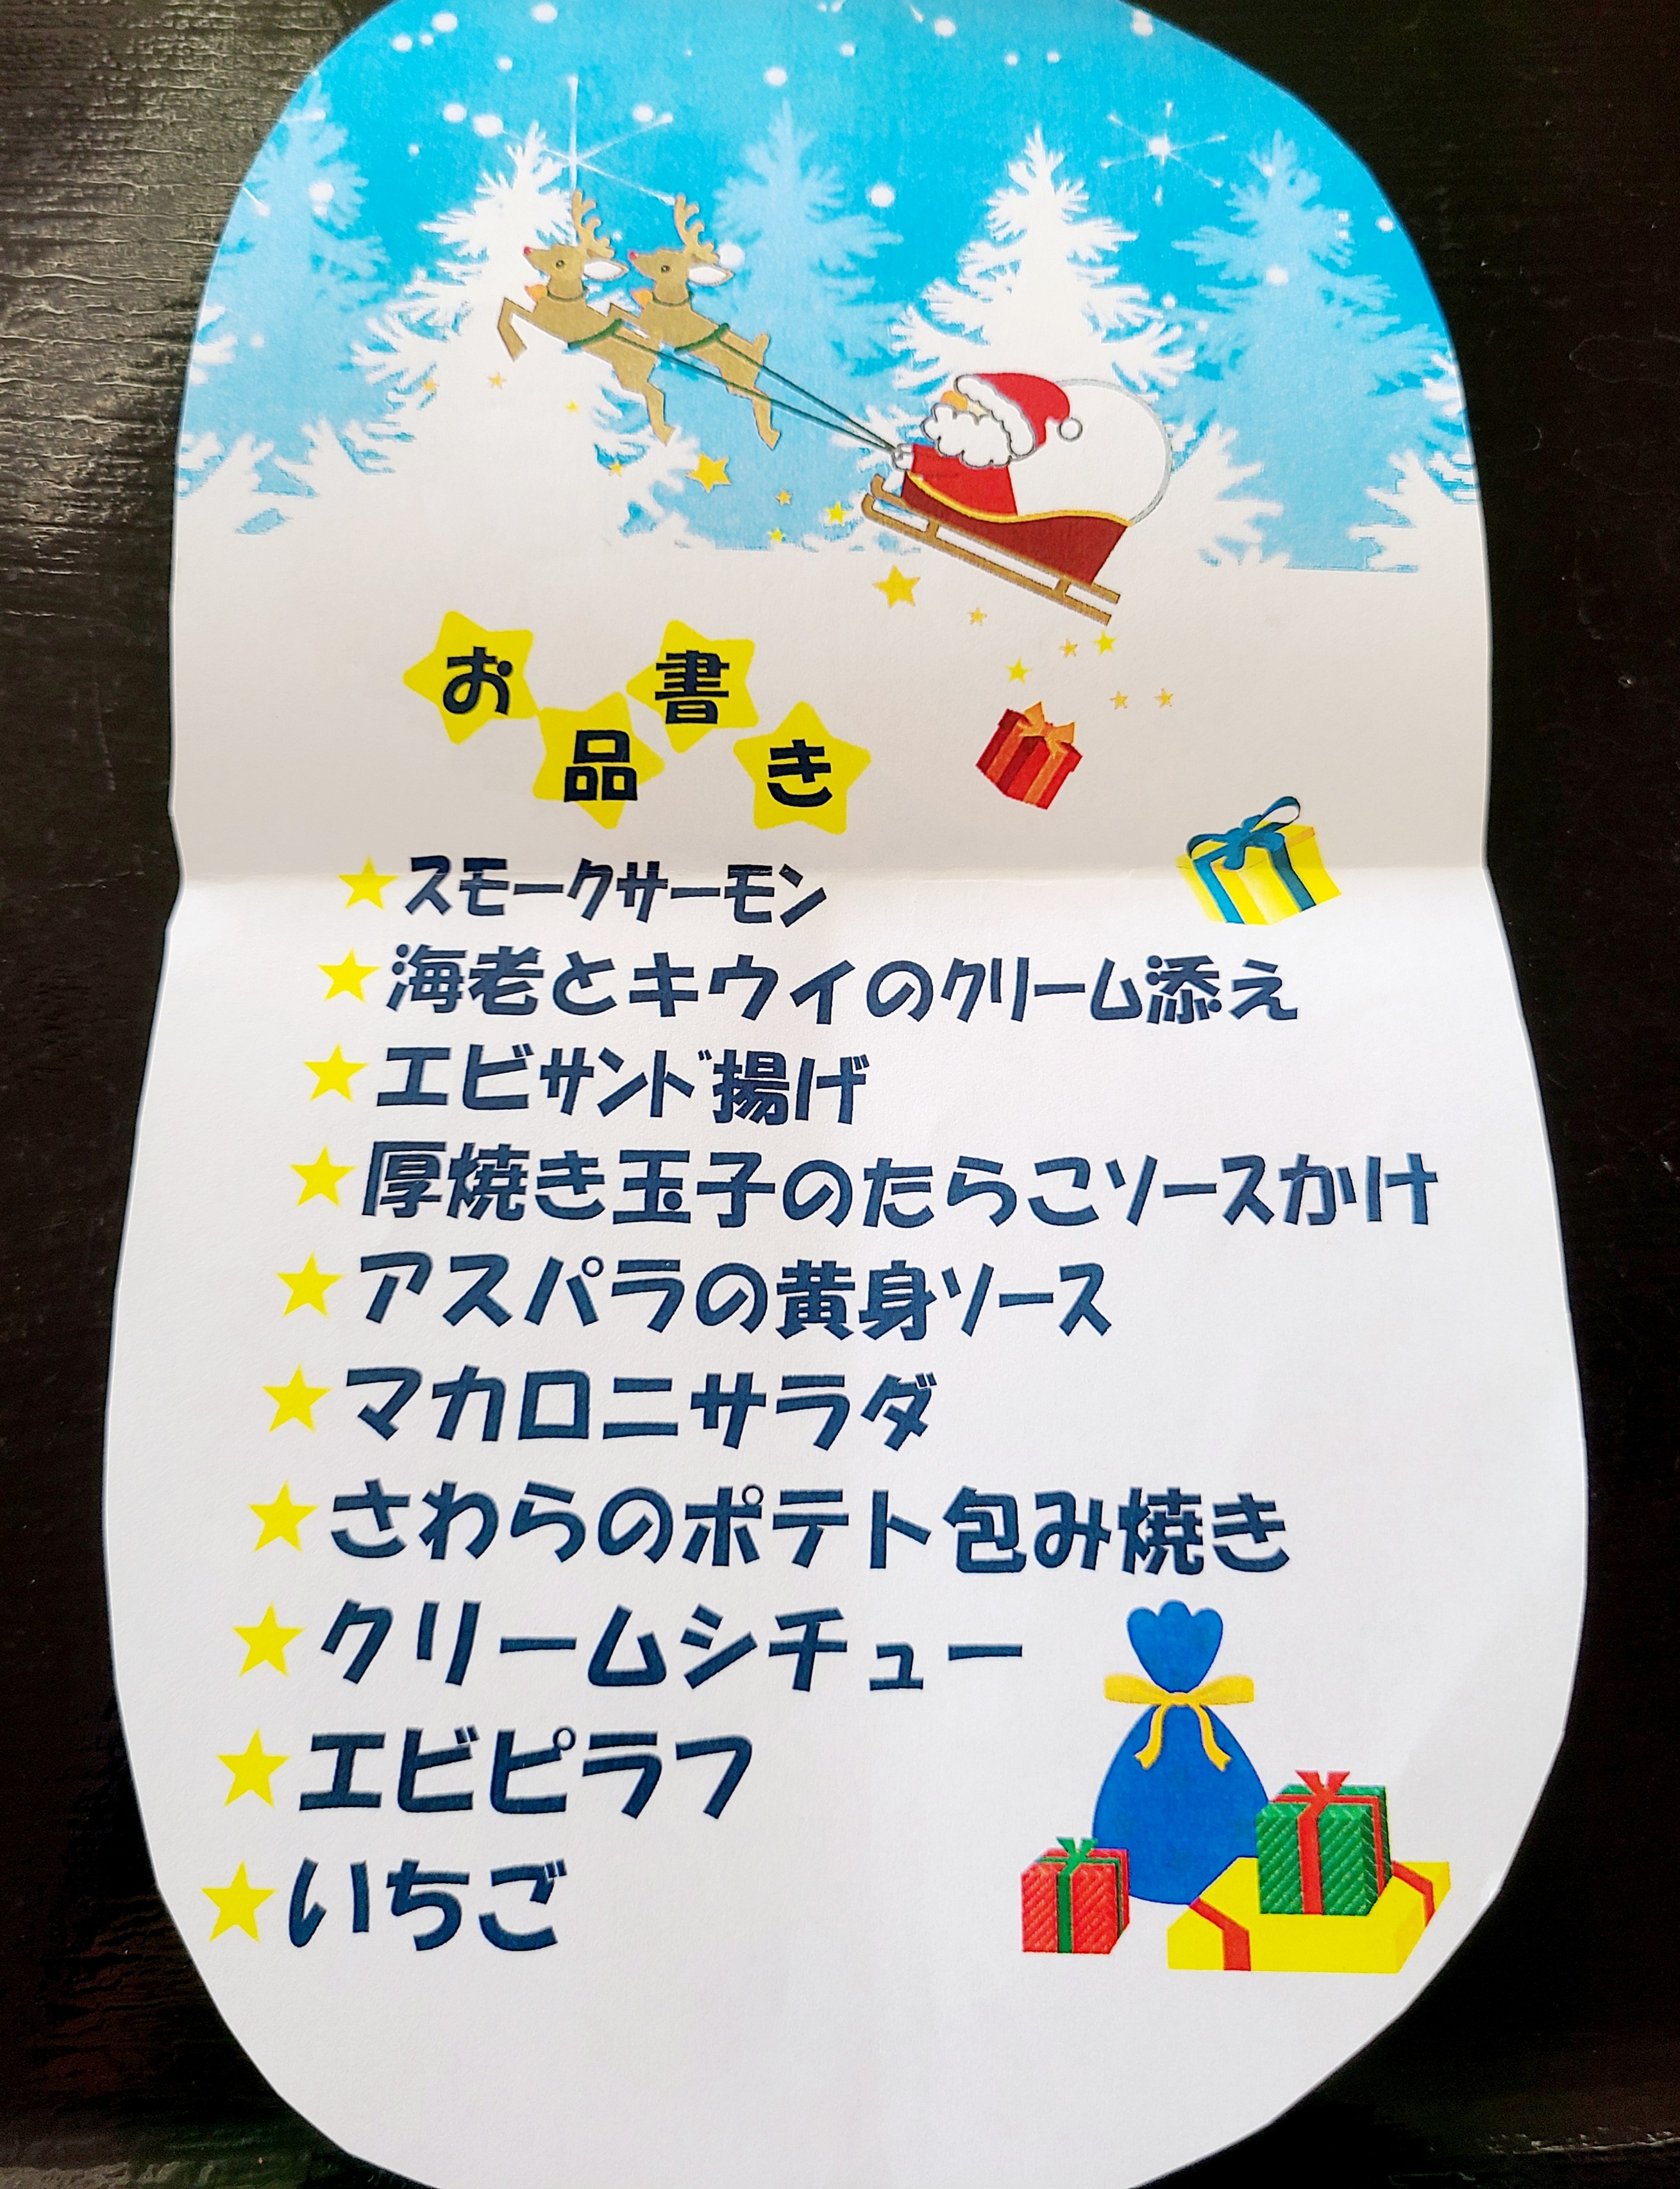 お品書き
★スモークサーモン
★海老とキウイのクリーム添え
★エビサンド揚げ
★厚焼き玉子のたらこソースかけ
★アスパラの黄身ソース
★マカロニサラダ
★さわらのポテト包み焼き
★クリームシチュー
★エビピラフ
★いちご